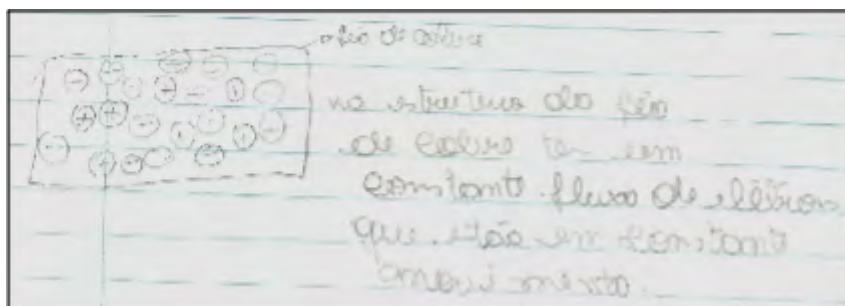 fio de cobre
na estrutura do fio
de cobre tem um
constante fluxo de elétrons
que estão em constante
movimento.